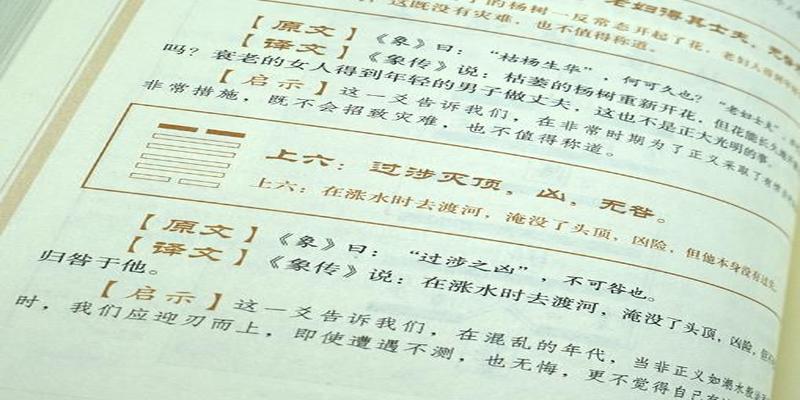 老妇得其士夫，无咎
的杨树一反常态开起了花，老妇人
这既没有灾难，也不值得称道。
【原文】《象》曰：“枯杨生华”，何可久也？“老妇士夫”，
【译文】《象传》说：枯萎的杨树重新开花，但花能长久
吗？衰老的女人得到年轻的男子做丈夫，这也不是正大光明的事。
【启示】这一爻告诉我们，在非常时期为了正义采取了
非常措施，既不会招致灾难，也不值得称道。
上六：过涉灭顶，凶，无咎。
上六：在涨水时去渡河，淹没了头顶，凶险，但他本身没有过
【原文】《象》曰：“过涉之凶”，不可咎也。
【译文】《象传》说：在涨水时去渡河，淹没了头顶，凶险，
归咎于他。
【启示】这一爻告诉我们，在混乱的年代，当非正义如潮水般
时，我们应迎刃而上，即使遭遇不测，也无悔，更不觉得自己有